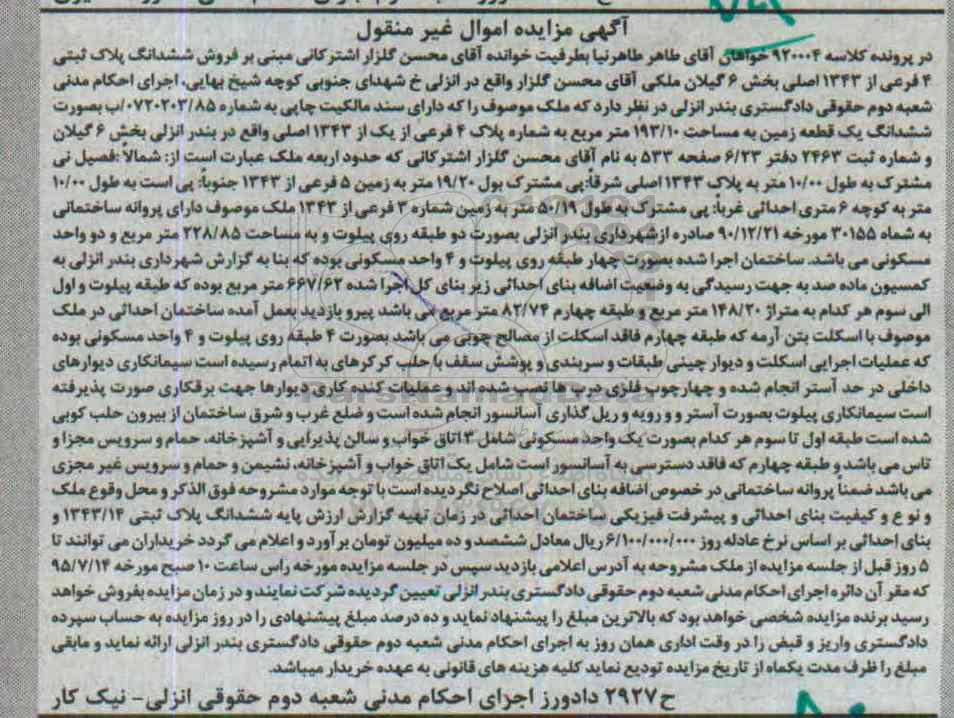 آگهی مزایده اموال غیر منقول
در پرونده کلاسه ۹۲۰۰۰۴ خواهان آقای طاهر طاهرنیا بطرفیت خوانده آقای محسن گلزار اشترکانی مبنی بر فروش ششدانگ پلاک ثبتی
۴ فرعی از ۱۳۴۳ اصلی بخش ۶ گیلان ملکی آقای محسن گلزار واقع در انزلی خ شهدای جنوبی کوچه شیخ بهایی، اجرای احکام مدنی
شعبه دوم حقوقی دادگستری بندر انزلی در نظر دارد که ملک موصوف را که دارای سند مالکیت چاپی به شماره ۰۷۲۰۲۰۳/۸۵/ب بصورت
ششدانگ یک قطعه زمین به مساحت ۱۹۳/۱۰ متر مربع به شماره پلاک ۴ فرعی از یک از ۱۳۴۳ اصلی واقع در بندر انزلی بخش ۶ گیلان
و شماره ثبت ۲۴۶۳ دفتر ۶/۲۳ صفحه ۵۳۳ به نام آقای محسن گلزار اشترکانی که حدود اربعه ملک عبارت است از: شمالاً :فصیل نی
مشترک به طول ۱۰/۰۰ متر به پلاک ۱۳۴۳ اصلی شرقاً:پی مشترک بول ۱۹/۲۰ متر به زمین ۵ فرعی از ۱۳۴۳ جنوباً: پی است به طول ۱۰/۰۰
متر به کوچه ۶ متری احداثی غرباً: پی مشترک به طول ۵۰/۱۹ متر به زمین شماره ۳ فرعی از ۱۳۴۳ ملک موصوف دارای پروانه ساختمانی
به شماه ۳۰۱۵۵ مورخه ۹۰/۱۲/۲۱ صادره ازشهرداری بندر انزلی بصورت دو طبقه روی پیلوت و به مساحت ۲۲۸/۸۵ متر مربع و دو واحد
مسکونی می باشد. ساختمان اجرا شده بصورت چهار طبقه روی پیلوت و ۴ واحد مسکونی بوده که بنا به گزارش شهرداری بندر انزلی به
کمسیون ماده صد به جهت رسیدگی به وضعیت اضافه بنای احداثی زیر بنای کل اجرا شده ۶۶۷/۶۲ متر مربع بوده که طبقه پیلوت و اول
الی سوم هر کدام به متراژ ۱۴۸/۲۰ متر مربع و طبقه چهارم ۸۲/۷۴ متر مربع می باشد پیرو بازدید بعمل آمده ساختمان احداثی در ملک
موصوف با اسکلت بتن آرمه که طبقه چهارم فاقد اسکلت از مصالح چوبی می باشد بصورت ۴ طبقه روی پیلوت و ۴ واحد مسکونی بوده
که عملیات اجرایی اسکلت و دیوار چینی طبقات و سربندی و پوشش سقف با حلب کرکرهای به اتمام رسیده است سیمانکاری دیوارهای
داخلی در حد آستر انجام شده و چهارچوب فلزی درب ها نصب شده اند و عملیات کنده کاری دیوارها جهت برقکاری صورت پذیرفته
است سیمانکاری پیلوت بصورت آستر و و رویه و ریل گذاری آسانسور انجام شده است و ضلع غرب و شرق ساختمان از بیرون حلب کوبی
شده است طبقه اول تا سوم هر کدام بصورت یک واحد مسکونی شامل ۳ اتاق خواب و سالن پذیرایی و آشپزخانه، حمام و سرویس مجزا و
تاس می باشد و طبقه چهارم که فاقد دسترسی به آسانسور است شامل یک اتاق خواب و آشپزخانه، نشیمن و حمام و سرویس غیر مجزی
می باشد ضمناً پروانه ساختمانی در خصوص اضافه بنای احداثی اصلاح نگردیده است با توجه موارد مشروحه فوق الذکر و محل وقوع ملک
و نوع و کیفیت بنای احداثی و پیشرفت فیزیکی ساختمان احداثی در زمان تهیه گزارش ارزش پایه ششدانگ پلاک ثبتی ۱۳۴۳/۱۴ و
بنای احداثی بر اساس نرخ عادله روز ۶/۱۰۰/۰۰۰/۰۰۰ ریال معادل ششصد و ده میلیون تومان برآورد و اعلام می گردد خریداران می توانند تا
۵ روز قبل از جلسه مزایده از ملک مشروحه به آدرس اعلامی بازدید سپس در جلسه مزایده مورخه راس ساعت ۱۰ صبح مورخه ۹۵/۷/۱۴
که مقر آن دائره اجرای احکام مدنی شعبه دوم حقوقی دادگستری بندر انزلی تعیین گردیده شرکت نمایند و در زمان مزایده بفروش خواهد
رسید برنده مزایده شخصی خواهد بود که بالاترین مبلغ را پیشنهاد نماید و ده درصد مبلغ پیشنهادی را در روز مزایده به حساب سپرده
دادگستری واریز و قبض را در وقت اداری همان روز به اجرای احکام مدنی شعبه دوم حقوقی دادگستری بندر انزلی ارائه نماید و مابقی
مبلغ را ظرف مدت یکماه از تاریخ مزایده تودیع نماید کلیه هزینه های قانونی به عهده خریدار میباشد.
ح۲۹۲۷ دادورز اجرای احکام مدنی شعبه دوم حقوقی انزلی- نیک کار